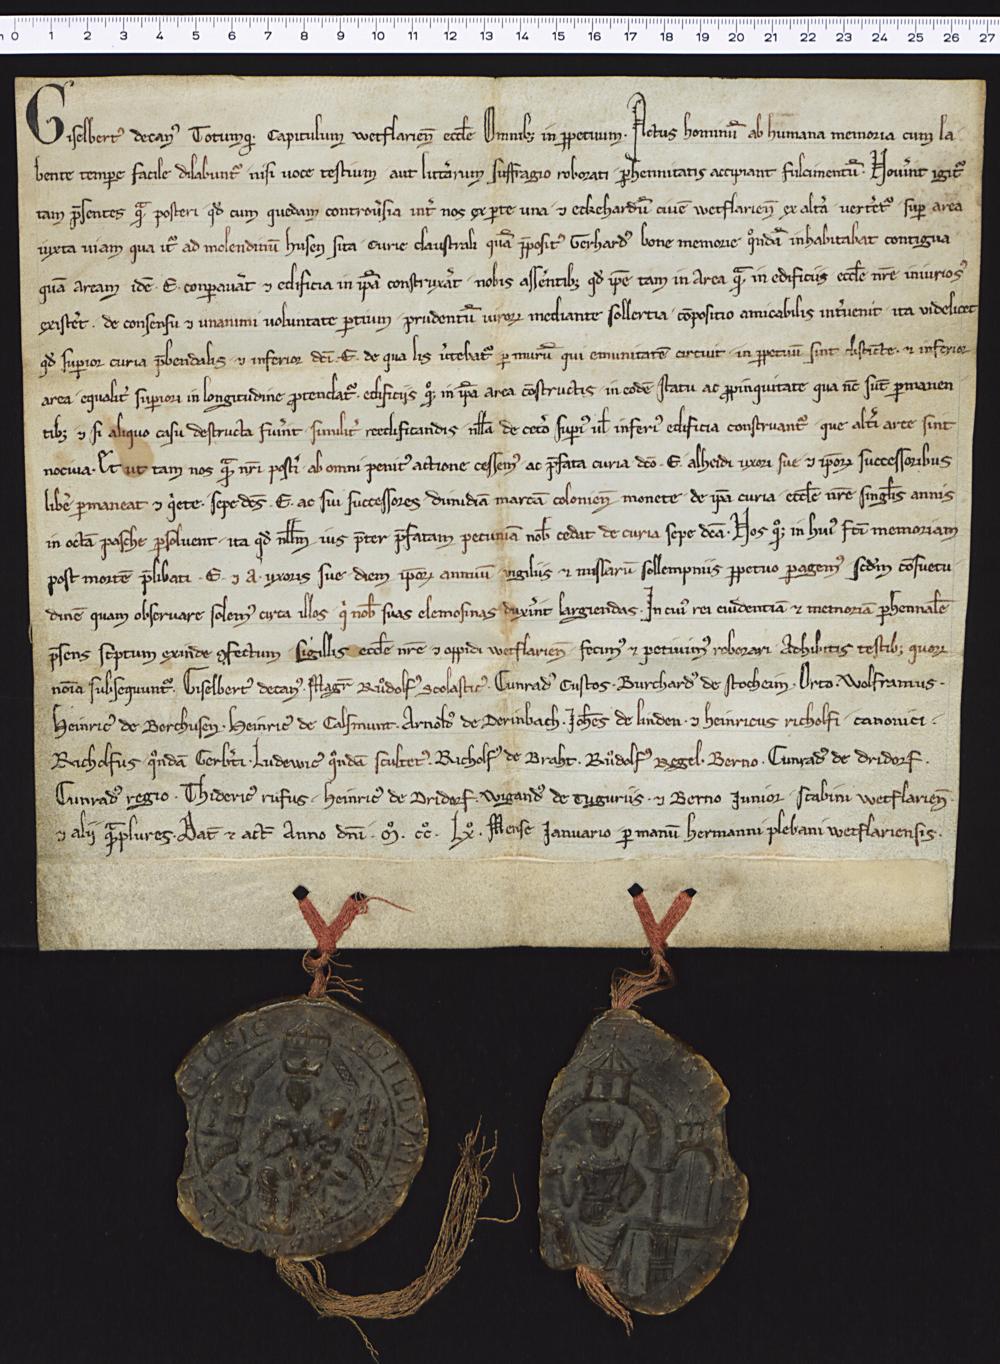 0 1 2 3 4 5 6 7 8 9 10 11 12 13 14 15 16 17 18 19 20 21 22 23 24 25 26 27
Giselbert᷒ decan᷒ Totumq́ꝫ Capitulum wetflarieñ eccƚe Omnibꝫ in ꝑpetuum. Actus hominū ab humana memoria cum la
bente tempe facile dilabunt᷒ nisi uoce testium aut litt̾arum suffragio roborati ꝑhennitatis accipiant fulcimentū. Nou̾int igit᷒
tam p̄sentes q̄ꝫ posteri qd̓ cum quedam controu̾sia int̾ nos ex ꝑte una ⁊ eckehardū ciuē wetflarieñ ex alt̾a uert̾et᷒ suꝑ area
iuxta uiam qua it᷒ ad molendinū husen sita curie claustrali quā p̄posit᷒ Gerhard᷒ bone memorie q̊ndā inhabitabat contigua
quā aream idē .E. conparau̾at ⁊ edificia in ip̄a construx̾at nobis ass̾entibꝫ qd̓ ip̄e tam in area q̄ꝫ in edificiis eccƚe nr̄e iniurios᷒
exist̾et. de consensu ⁊ unanimi uoluntate ꝑtium prudentū uiroꝝ mediante sollertia cōpositio amicabilis int̾uenit ita videlicet
qd̓ suꝑior curia p̄bendalis ⁊ inferior dc̄i .E. de qua lis u̾tebat᷒ ꝑ murū qui emunitatē circuit in ꝑpetuū sint distincte. ⁊ inferior
area equalit̾ suꝑiori in longitudine ꝓtendat᷒. edificiis qꝫ in ip̄a area cōstructis in eodē statu ac ꝓpinquitate qua nc̄ sūt ꝑmanen
tibꝫ ⁊ si aliquo casu destructa fu̾int similit̾ reedificandis nƚƚa de cet̾o suꝑi᷒ uƚ inferi᷒ edificia construant᷒ que alt̾i aree sint
nociua. Et ut tam nos q̄ꝫ nr̄i post̾i ab omni penit᷒ actione cessem᷒ ac p̄fata curia dc̄o .E. alheidi uxori sue ⁊ ip̄oꝝ successoribus
libe̾ ꝑmaneat ⁊ q̾ete. sepe dc̄s .E. ac sui successores dimidiā marcā colonieñ monete de ip̄a curia eccƚe nr̄e singƚis annis
in octā pasche ꝑsoluent ita qd̓ nƚƚm ius p̄ter p̄fatam pecuniā nob̄ cedat de curia sepe dc̄a. Nos qꝫ in hui᷒ fc̄i memoriam
post mortē p̄libati .E. ⁊ A. uxoris sue diem ip̄oꝝ annuū uigiliis ⁊ missarū sollempniis ꝑpetuo ꝑagem᷒ scd̄m cōsuetu
dinē quam obseruare solem᷒ circa illos q̓ nob̄ suas elemosinas dux̾int largiendas. In cui᷒ rei euidentiā ⁊ memoriā ꝑhennalē
p̄sens sc̾ptum exinde ꝯfectum Sigillis eccƚe nr̄e ⁊ oppidi wetflarieñ fecim᷒ ⁊ petiuim᷒ roborari Adhibitis testibꝫ quoꝝ
nōia subsequunt᷒. Giselbert᷒ decan᷒. Magr̄ Růdolf᷒ Scolastic᷒. Cunrad᷒ Custos. Burchard᷒ de stocheim. Orto. Wolframus.
Heinric᷒ de Berchusen. Heinric᷒ de Calsmunt. Arnold᷒ de Derinbach. Joh̄es de linden. ⁊ heinricus richolfi canonici.
Richolfus q̊ndā Gerb̾ti. Ludewic᷒ q̊ndā scultet᷒. Richolf᷒ de Braht. Růdolf᷒ Regel. Berno. Cunrad᷒ de dridorf.
Cunrad᷒ regio. Thideric᷒ rufus. heinric᷒ de Dridorf. Wigand᷒ de tuguriis. ⁊ Berno Junior. Scabini wetflarieñ.
⁊ alij q̄ꝫplures. Dat̄ ⁊ act̄ Anno dn̄i .M̊. cc̊. Lx̊. Mense Januario ꝑ manū hermanni plebani wetflariensis.
SIGILLVM